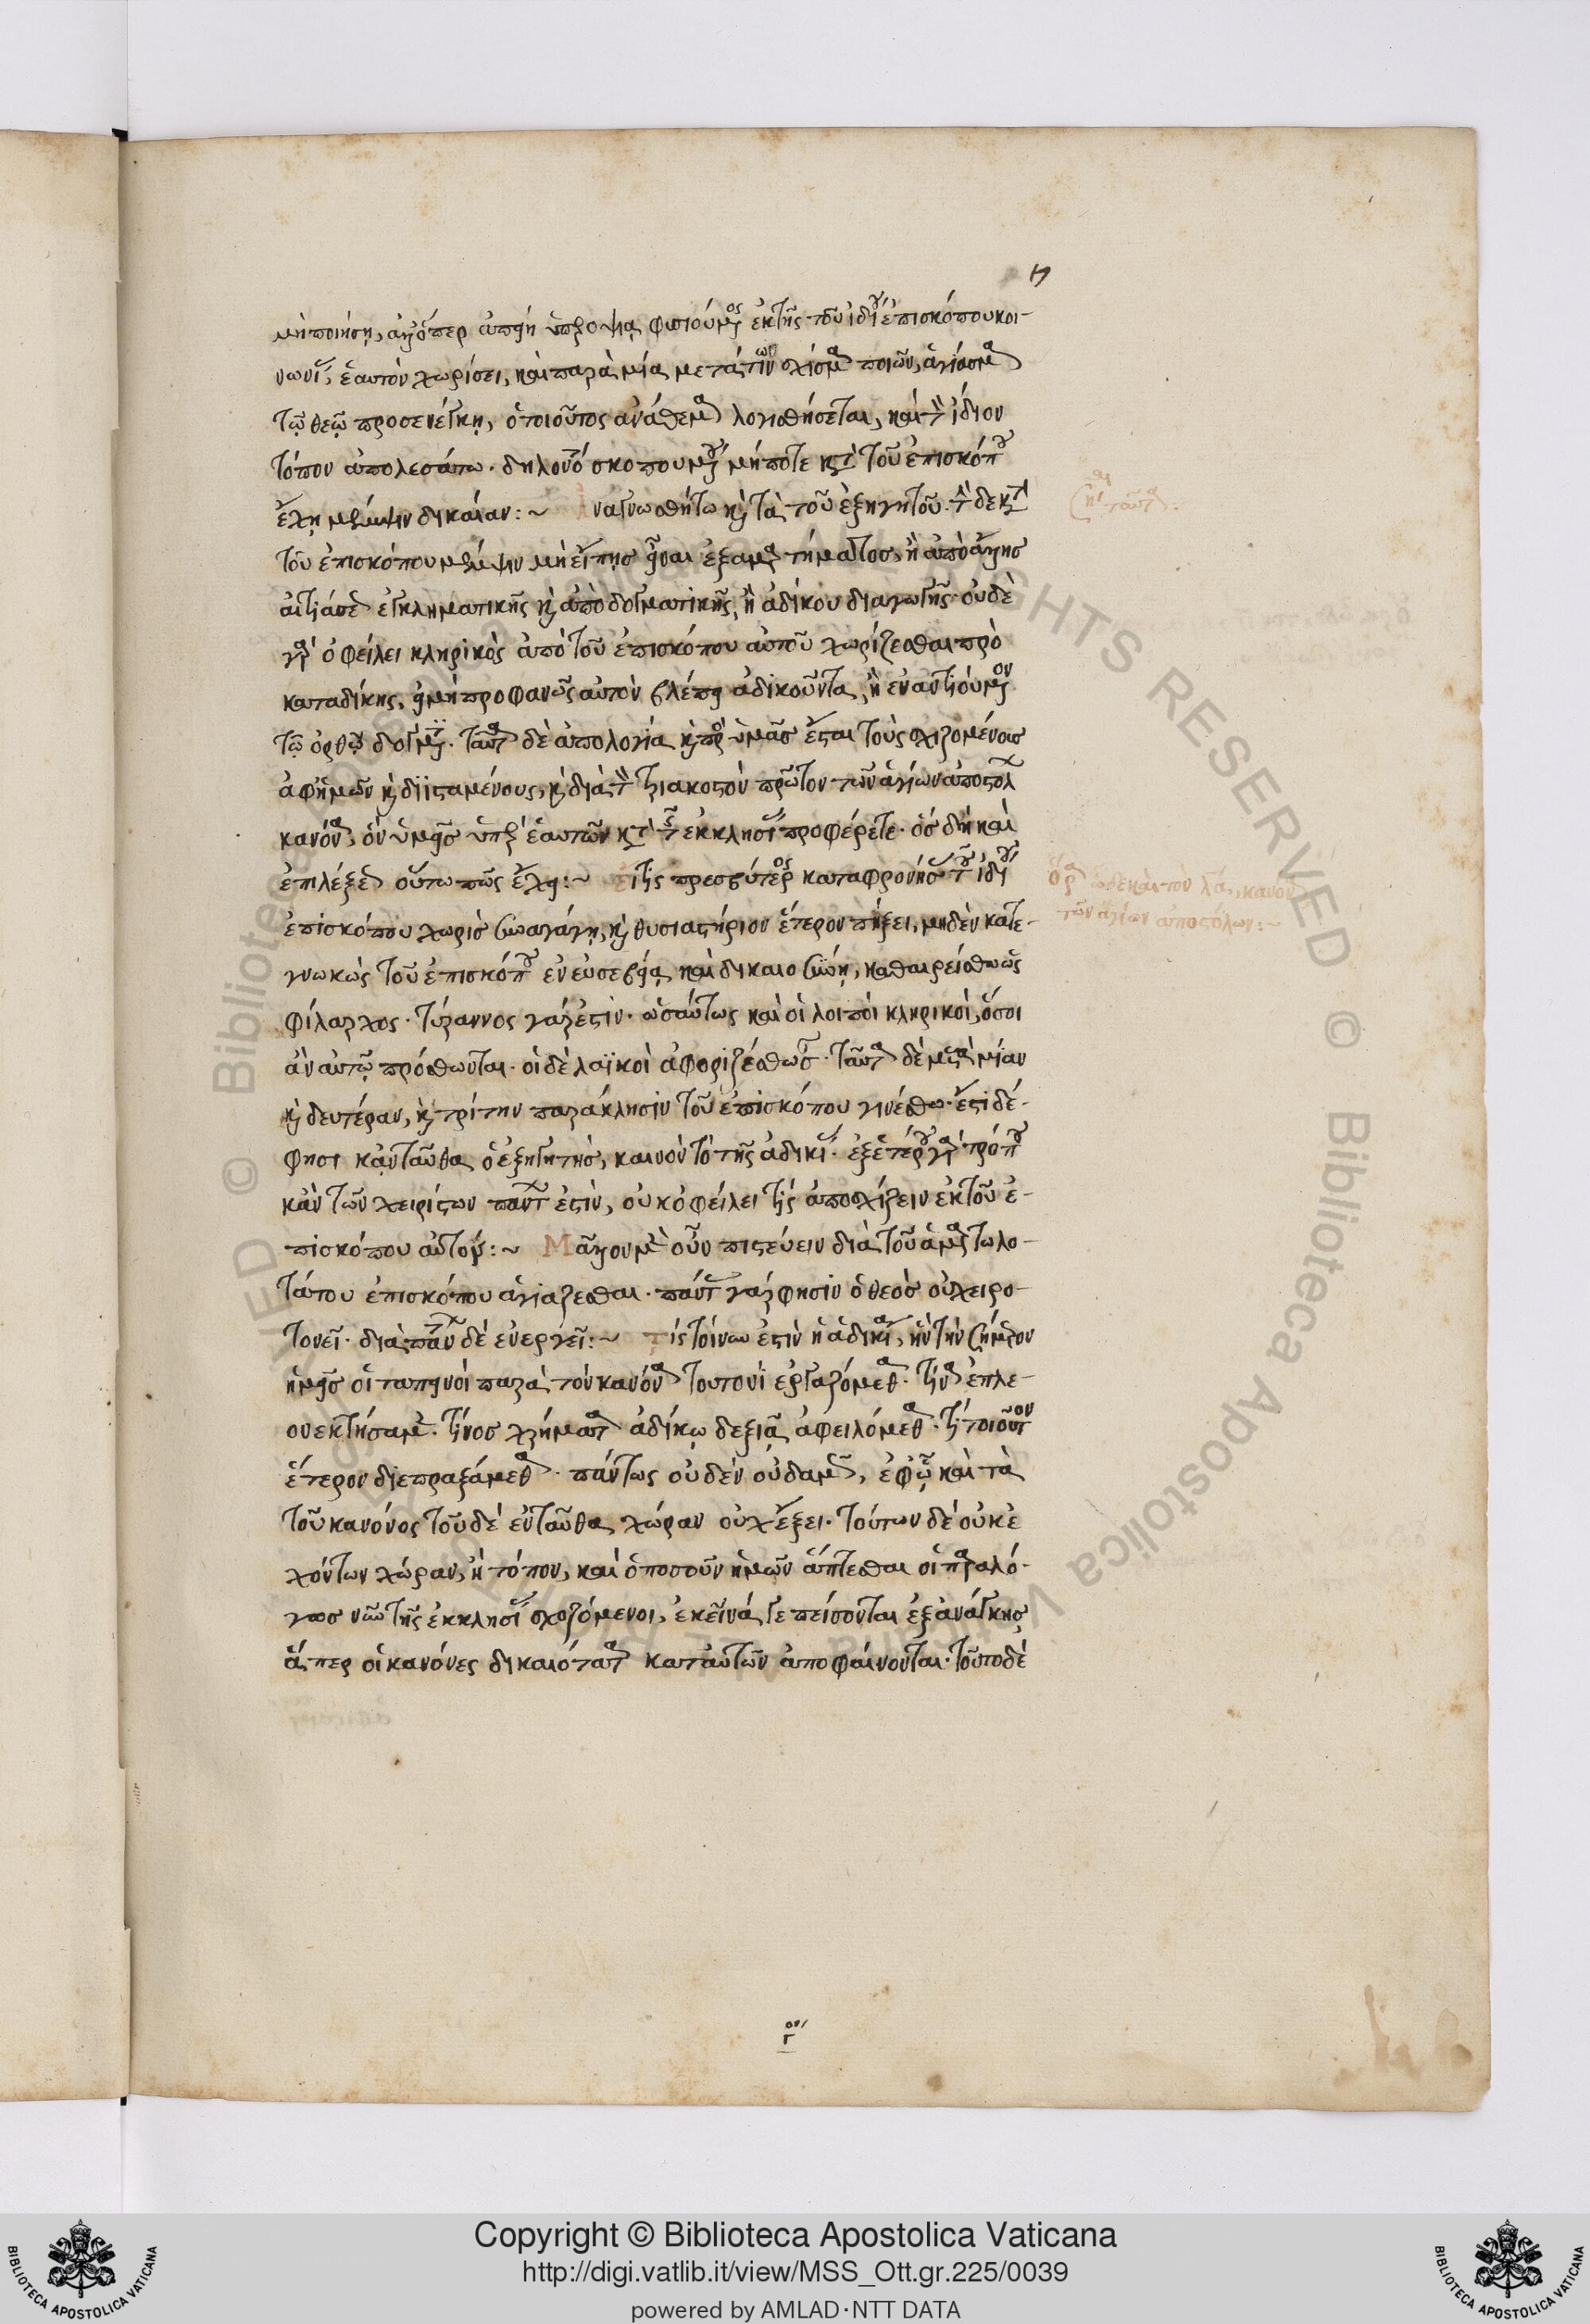 η
μὴ ποιήσῃ, ἀλλ' ὅπερ ἀπείη ὑπεροψίᾳ φυσιούμενος ἐκ τῆς τοῦ ἰδίου ἐπισκόπου κοι-
νωνίας ἑαυτὸν χωρίσει, καὶ παρὰ μίαν μετά τινων σχίσμα ποιῶν, ἁγίασμα
τῷ θεῷ προσενέγκῃ, ὁ τοιοῦτος ἀνάθεμα λογισθήσεται, καὶ τὸν ἴδιον
τόπον ἀπολεσάτω. δηλονότι σκοπουμένου μήποτε κατὰ τοῦ ἐπισκόπου
ἔχῃ μέμψιν δικαίαν:~ Ἀναγνωσθήτω καὶ τὰ τοῦ ἐξηγητοῦ. τὴν δὲ κατὰ
τοῦ ἐπισκόπου μέμψιν μὴ εἴπῃς εἶναι ἐξ ἁμαρτήματος, ἢ ἀπὸ ἄλλης
αἰτιάσεως ἐγκληματικῆς καὶ ἀπὸ δογματικῆς, ἢ ἀδίκου διαγωγῆς. οὐδὲ
γὰρ ὀφείλει κληρικὸς ἀπὸ τοῦ ἐπισκόπου αὐτοῦ χωρίζεσθαι πρὸ
καταδίκης, εἰ μὴ προφανῶς αὐτὸν βλέπει ἀδικοῦντα, ἢ ἐναντιούμενον
τῷ ὀρθῷ δόγματι. ταῦτα δὲ ἀπολογία καὶ πρὸς ὑμᾶς ἔσται τοὺς σχιζομένους
ἀφ' ἡμῶν καὶ διϊσταμένους, καὶ διὰ τὸν τριακοστὸν πρῶτον τῶν ἁγίων ἀποστόλων
κανόνα, ὃν ὑμεῖς ὑπὲρ ἑαυτῶν κατὰ τῆς ἐκκλησίας προφέρετε. ὃς δὴ καὶ
ἐπὶ λέξεως οὕτω πῶς ἔχει:~ Εἴ τις πρεσβύτερος καταφρονήσας τοῦ ἰδίου
ἐπισκόπου χωρὶς συναγάγῃ, καὶ θυσιαστήριον ἕτερον πήξει, μηδὲν κατε-
γνωκὼς τοῦ ἐπισκόπου ἐν εὐσεβείᾳ καὶ δικαιοσύνῃ, καθαιρείσθω ὡς
φίλαρχος. τύραννος γάρ ἐστιν. ὡσαύτως καὶ οἱ λοιποὶ κληρικοὶ, ὅσοι
ἂν αὐτῷ πρόσθωνται. οἱ δὲ λαϊκοὶ ἀφοριζέσθωσαν. ταῦτα δὲ μετὰ μίαν
καὶ δευτέραν, καὶ τρίτην παράκλησιν τοῦ ἐπισκόπου γινέσθω. ἔτι δέ
φησι κἀνταῦθα ὁ ἐξηγητὴς, καινὸν τὸ τῆς ἀδικίας. ἐξ ἑτέρου γὰρ τρόπου
κἂν τῶν χειρίστων πάντων ἐστὶν, οὐκ ὀφείλει τίς ἀποσχίζειν ἐκ τοῦ ἐ-
πισκόπου αὐτοῦ:~ Μᾶλλον μὲν οὖν πιστεύειν διὰ τοῦ ἁμαρτωλο-
τάτου ἐπισκόπου ἁγιάζεσθαι. πάντας γάρ φησιν ὁ θεὸς οὐ χειρο-
τονεῖ. διὰ πάντων δὲ ἐνεργεῖ:~ Τίς τοίνυν ἐστὶν ἡ ἀδικία, ἣν τὴν σήμερον
ἡμεῖς οἱ ταπεινοὶ παρὰ τὸν κανόνα τουτονὶ ἐργαζόμεθα. τίνα ἐπλε-
ονεκτήσαμεν. τίνος χρήματα ἀδίκῳ δεξιᾷ ἀφειλόμεθα. τί τοιοῦτον
ἕτερον διεπραξάμεθα. πάντως οὐδὲν οὐδαμῶς, ἐφ' ᾧ καὶ τὰ
τοῦ κανόνος τοῦδε ἐνταῦθα χώραν οὐχ ἕξει. τούτων δὲ οὐκ ἐ
χόντων χώραν, ἢ τόπον, καὶ ὁποσοῦν ἡμῶν ἅπτεσθαι οἱ παραλό-
γως νῦν τῆς ἐκκλησίας σχιζόμενοι, ἐκεῖνά γε πείσονται ἐξ ἀνάγκης
ἅπερ οἱ κανόνες δικαιότατα κατ' αὐτῶν ἀποφαίνονται. τοῦτο δὲ
σημείωσαι ταῦτα.
ὅρα ὧδε καὶ τὸν λα, κανόνα
τῶν ἁγίων ἀποστόλων:~
γον
© Biblioteca Apostolica Vaticana
ALL RIGHTS RESERVED
Copyright © Biblioteca Apostolica Vaticana
http://digi.vatlib.it/view/MSS_Ott.gr.225/0039
powered by AMLAD·NTT DATA
BIBLIOTECA APOSTOLICA VATICANA
BIBLIOTECA APOSTOLICA VATICANA